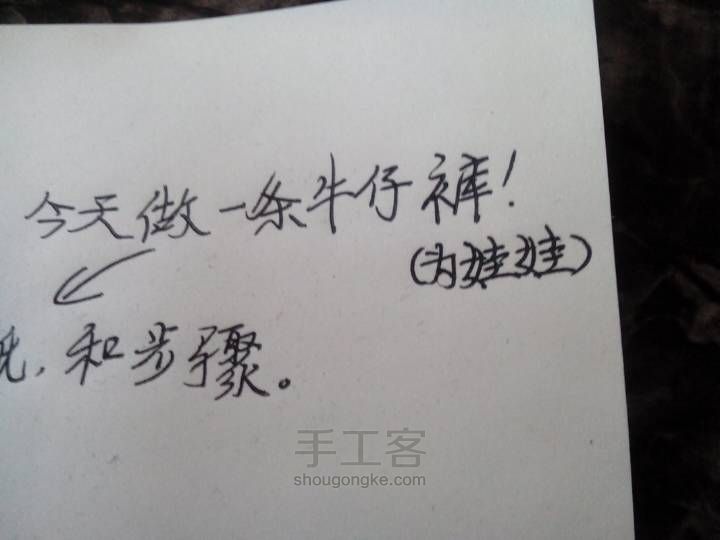 今天做一条牛仔裤！
（为娃娃）
，和步骤。
手工客
shougongke.com